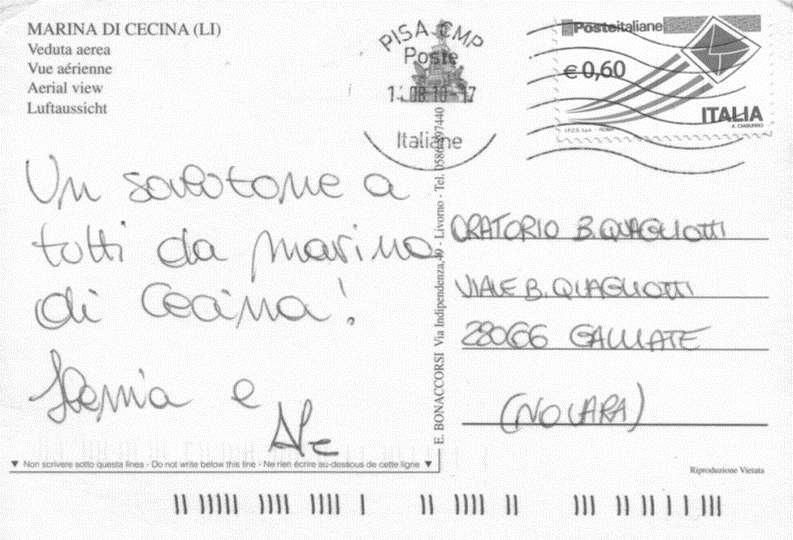 MARINA DI CECINA (LI)
Veduta aerea
Vue aérienne
Aerial view
Luftaussicht
PISA CMP
Poste
14.08.10-17
Italiane
Posteitaliane
€ 0,60
ITALIA
Un salutone a
tutti da Marina
di Cecina!
e
Ale
E. BONACCORSI Via Indipendenza,49 - Livorno - Tel.
ORATORIO B.QUAGLIOTTI
VIALE B.QUAGLIOTTI
28066 GALLIATE
(NOVARA)
▼ Non scrivere sotto questa linea - Do not write below this line - Ne rien écrire au-dessous de cette ligne ▼
Riproduzione Vietata